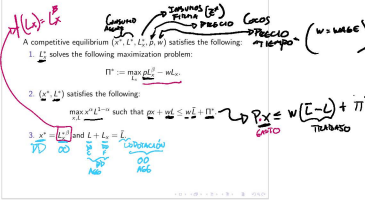 f(Lx) = Lx^β
CONSUMO
INSUMOS
FIRMA (Lx*)
PRECIO
COCOS
PRECIO
TIEMPO
(W = WAGE)
A competitive equilibrium (x*, L*, Lx*, p, w) satisfies the following:
1. Lx* solves the following maximization problem:
Π* := max pLx^β − wLx.
Lx
2. (x*, L*) satisfies the following:
max x^α L^{1−α} such that px + wL ≤ wL̄ + Π*.
x,L
P·x ≤ w(L̄ − L) + Π
GASTO
TRABAJO
3. x* = Lx*^β and L + Lx = L̄.
DD
OO
DD
AGG
DOTACIÓN
OO
AGG